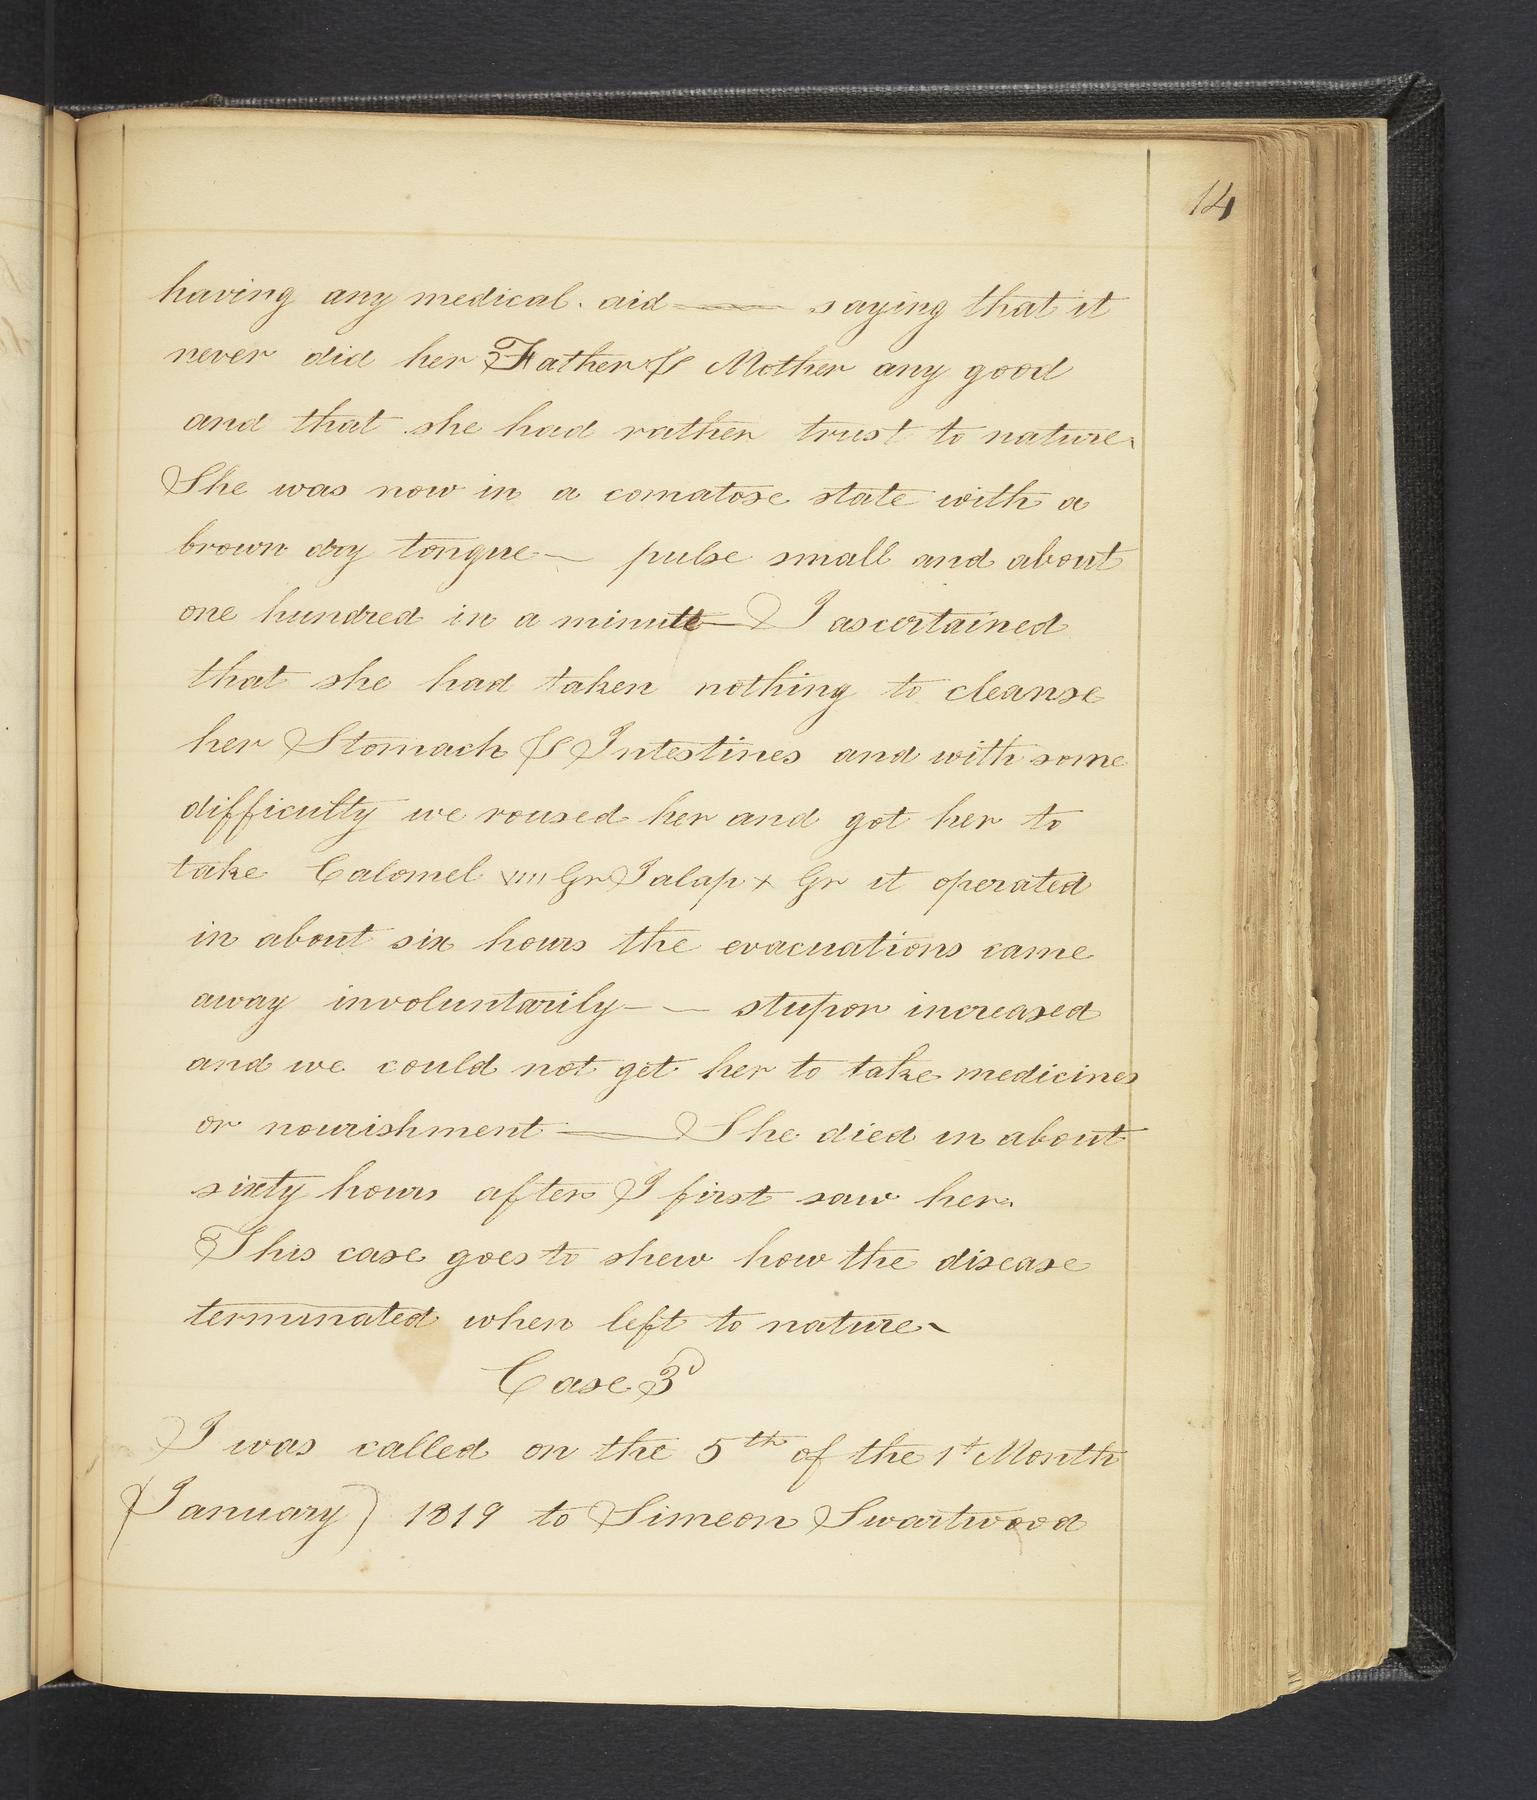 14
having any medical aid — saying that it
never did her Father & Mother any good
and that she had rather trust to nature.
She was now in a comatose state with a
brown dry tongue — pulse small and about
one hundred in a minute — I ascertained
that she had taken nothing to cleanse
her Stomach & Intestines and with some
difficulty we roused her and got her to
take Calomel viiii Gr Jalap x Gr it operated
in about six hours the evacuations came
away involuntarily — — stupor increased
and we could not get her to take medicines
or nourishment — She died in about
sixty hours after I first saw her.
This case goes to shew how the disease
terminated when left to nature —
Case 3d
I was called on the 5th of the 1st Month
(January) 1819 to Simeon Swartwood